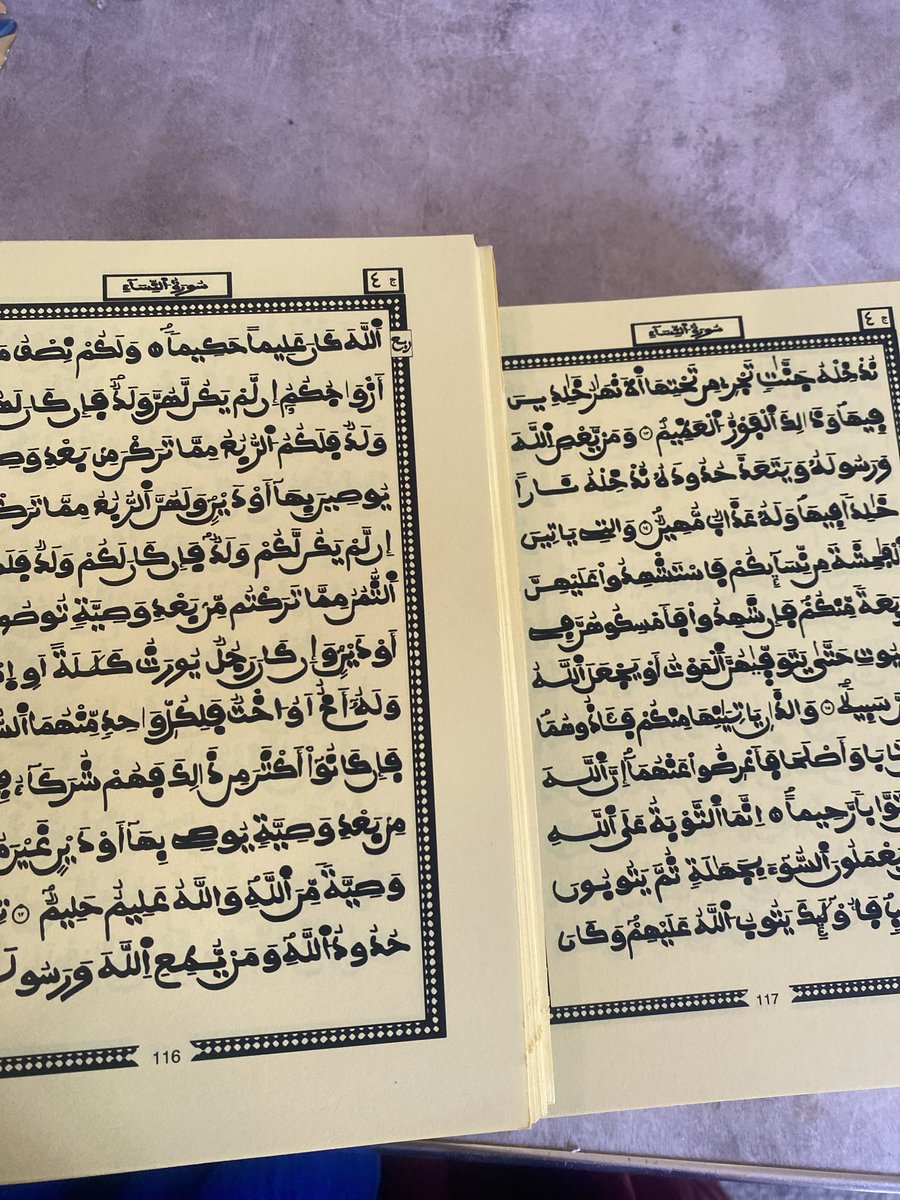 سُورَةُ النِّسَاءِ
ج ٤
ربع
اللَّهَ كَانَ عَلِيماً حَكِيماً ۝ وَلَكُمْ نِصْفُ
أَزْوَٰجُكُمْ إِن لَّمْ يَكُن لَّهُنَّ وَلَدٌ فَإِن كَانَ
وَلَدٌ فَلَكُمُ الرُّبُعُ مِمَّا تَرَكْنَ مِنۢ بَعْدِ
يُوصِينَ بِهَا أَوْ دَيْنٍ وَلَهُنَّ الرُّبُعُ مِمَّا
إِن لَّمْ يَكُن لَّكُمْ وَلَدٌ فَإِن كَانَ لَكُمْ وَلَدٌ
الثُّمُنُ مِمَّا تَرَكْتُم مِّنۢ بَعْدِ وَصِيَّةٍ
أَوْ دَيْنٍ وَإِن كَانَ رَجُلٌ يُورَثُ كَلَٰلَةً أَوِ
وَلَهُ أَخٌ أَوُ اخْتٌ فَلِكُلِّ وَٰحِدٍ مِّنْهُمَا
فَإِن كَانُوا أَكْثَرَ مِن ذَٰلِكَ فَهُمْ شُرَكَآءُ
مِنۢ بَعْدِ وَصِيَّةٍ يُوصِي بِهَا أَوْ دَيْنٍ غَيْرَ
وَصِيَّةً مِّنَ اللَّهِ وَاللَّهُ عَلِيمٌ حَلِيمٌ ۝
حُدُودُ اللَّهِ وَمَنْ يُّطِعِ اللَّهَ
116
سُورَةُ النِّسَاءِ
ج ٤
نُدْخِلْهُ جَنَّٰتٍ تَجْرِي مِن تَحْتِهَا الَانْهَٰرُ خَٰلِدِينَ
فِيهَا وَذَٰلِكَ الْفَوْزُ الْعَظِيمُ ۝ وَمَنْ يَّعْصِ اللَّهَ
وَرَسُولَهُ وَيَتَعَدَّ حُدُودَهُ نُدْخِلْهُ نَاراً
خَٰلِداً فِيهَا وَلَهُ عَذَابٌ مُّهِينٌ ۝ وَالَّٰتِي يَاتِينَ
الْفَٰحِشَةَ مِن نِّسَآئِكُمْ فَاسْتَشْهِدُوا عَلَيْهِنَّ
مِّنكُمْ فَإِن شَهِدُوا فَأَمْسِكُوهُنَّ فِي
حَتَّىٰ يَتَوَفَّيٰهُنَّ الْمَوْتُ أَوْ يَجْعَلَ اللَّهُ
سَبِيلاً ۝ وَالَّذَٰنِ يَاتِيَٰنِهَا مِنكُمْ فَـَٔاذُوهُمَا
وَأَصْلَحَا فَأَعْرِضُوا عَنْهُمَا إِنَّ اللَّهَ
رَّحِيماً ۝ إِنَّمَا التَّوْبَةُ عَلَى اللَّهِ
يَعْمَلُونَ السُّوٓءَ بِجَهَٰلَةٍ ثُمَّ يَتُوبُونَ
فَأُوْلَٰٓئِكَ يَتُوبُ اللَّهُ عَلَيْهِمْ وَكَانَ
117